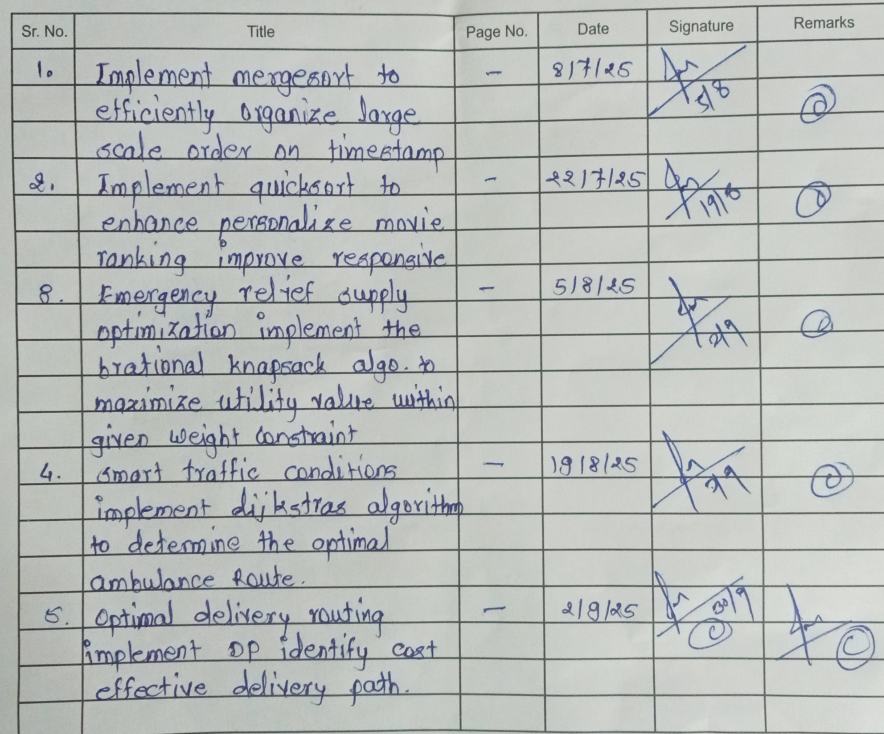 Sr. No. Title Page No. Date Signature Remarks
1. Implement mergesort to — 8/7/25
efficiently organize large 5/8
scale order on timestamp
2. Implement quicksort to — 22/7/25
enhance personalize movie 19/8
ranking improve responsive
3. Emergency relief supply — 5/8/25
optimization implement the 2/9
brational knapsack algo. to
maximize utility value within
given weight constraint
4. smart traffic conditions — 19/8/25
implement dijkstras algorithm
to determine the optimal
ambulance Route.
5. Optimal delivery routing — 2/9/25 30/9
implement DP identify cost C C
effective delivery path.